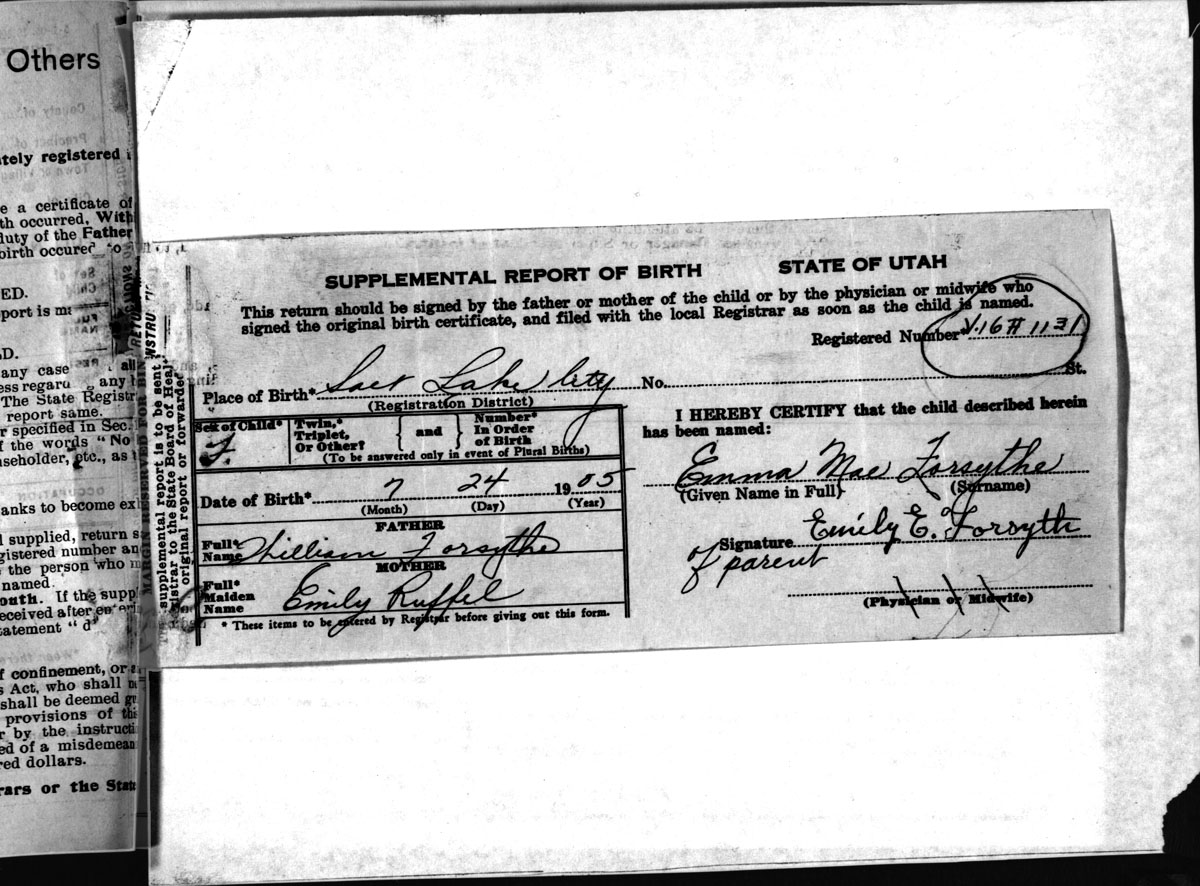 Others
ately registered i
e a certificate of
th occurred. With
duty of the Father
birth occured to
ED.
port is ma
D.
any case all
ess regard any
The State Registr
report same.
r specified in Sec.
f the words "No
seholder, etc., as
anks to become ex
l supplied, return s
gistered number an
the person who m
named.
outh. If the suppl
eceived after enteri
tatement "d
f confinement, or a
s Act, who shall
shall be deemed g
provisions of this
r by the instructi
ed of a misdemean
red dollars.
rars or the State
MARGIN RESERVED FOR
supplemental report is to be sent
istrar to the State Board of Heal
original report or forwarded
SUPPLEMENTAL REPORT OF BIRTH STATE OF UTAH
This return should be signed by the father or mother of the child or by the physician or midwife who
signed the original birth certificate, and filed with the local Registrar as soon as the child is named.
Registered Number* V.16 # 1131
Place of Birth* Salt Lake City No. St.
(Registration District)
Sex of Child* F.
Twin,* Triplet, Or Other? } and { Number* In Order of Birth
(To be answered only in event of Plural Births)
Date of Birth* 7 24 1905
(Month) (Day) (Year)
FATHER
Full* Name William Forsythe
MOTHER
Full* Maiden Name Emily Ruffel
* These items to be entered by Registrar before giving out this form.
I HEREBY CERTIFY that the child described herein
has been named:
Emma Mae Forsythe
(Given Name in Full) (Surname)
Signature Emily E. Forsyth
of parent
(Physician or Midwife)